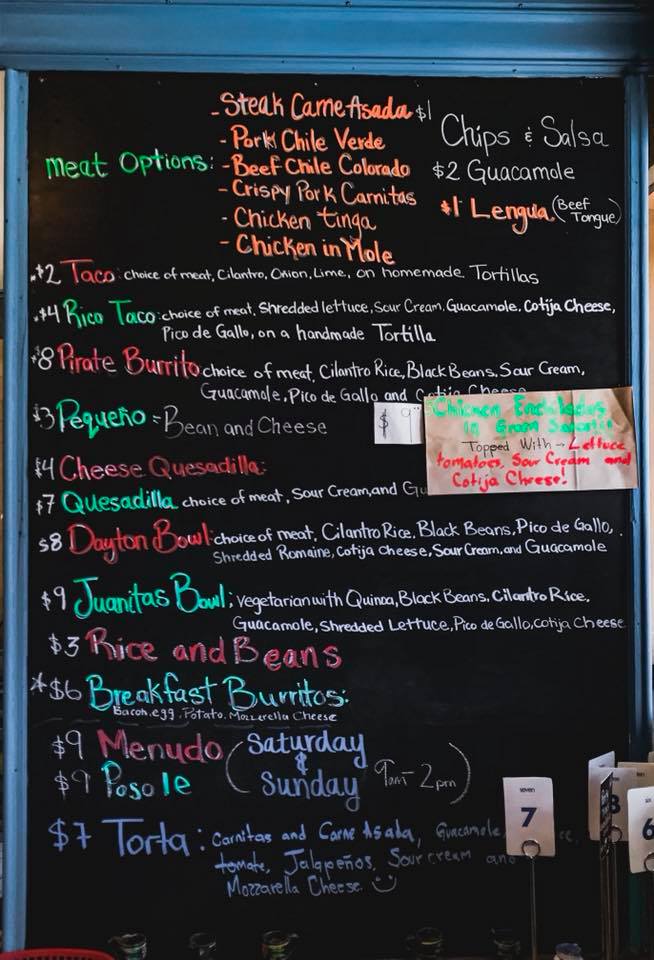 - Steak Carne Asada $1
- Pork Chile Verde
Meat Options: - Beef Chile Colorado
- Crispy Pork Carnitas
- Chicken tinga
- Chicken in Mole
Chips & Salsa
$2 Guacamole
$1 Lengua (Beef Tongue)
$2 Taco: choice of meat, Cilantro, Onion, Lime, on homemade Tortillas
$4 Rico Taco: choice of meat, Shredded lettuce, Sour Cream, Guacamole, Cotija Cheese,
Pico de Gallo, on a handmade Tortilla
$8 Pirate Burrito choice of meat, Cilantro Rice, Black Beans, Sour Cream,
Guacamole, Pico de Gallo and Cotija Cheese
$3 Pequeño = Bean and Cheese
$9
Chicken Enchiladas
in Green
Topped With → Lettuce
tomatoes, Sour Cream and
Cotija Cheese!
$4 Cheese Quesadilla:
$7 Quesadilla choice of meat, Sour Cream, and Gu
$8 Dayton Bowl: choice of meat, Cilantro Rice, Black Beans, Pico de Gallo,
Shredded Romaine, Cotija Cheese, Sour Cream, and Guacamole
$9 Juanitas Bowl; vegetarian with Quinoa, Black Beans, Cilantro Rice,
Guacamole, Shredded Lettuce, Pico de Gallo, cotija Cheese
$3 Rice and Beans
*$6 Breakfast Burritos:
Bacon, egg, Potato, Mozzerella Cheese
$9 Menudo
$9 Posole
(Saturday
&
Sunday
9am-2pm)
$7 Torta: Carnitas and Carne Asada, Guacamole,
tomate, Jalapeños, Sour cream and
Mozzarella Cheese
seven
7
8
6